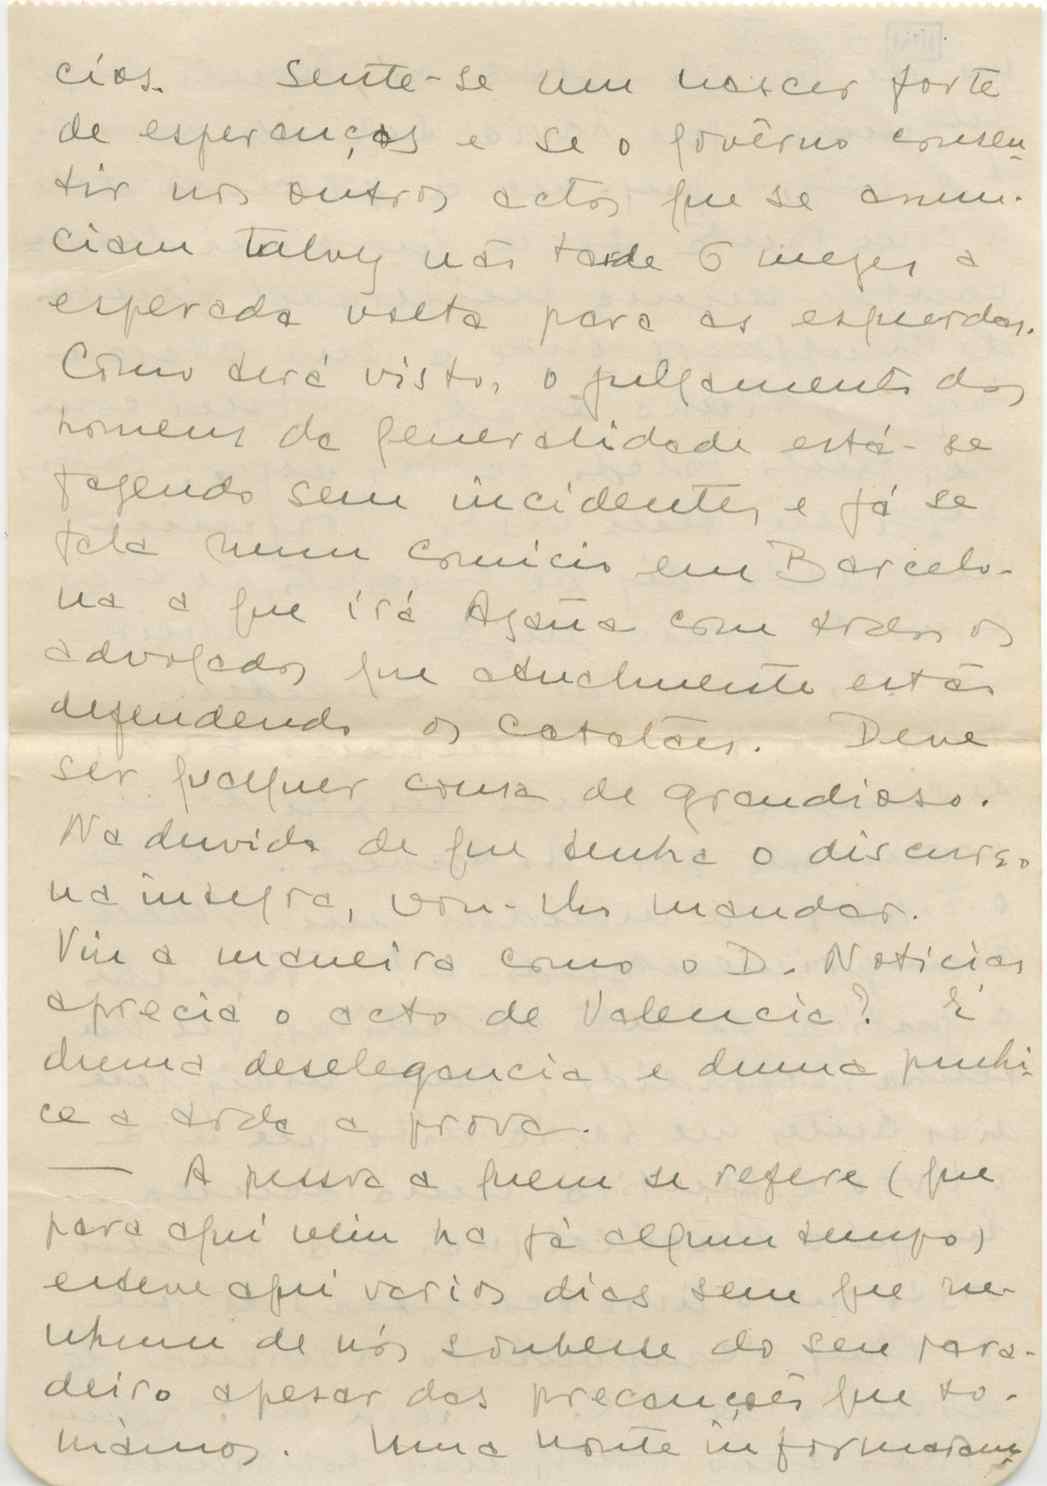 cios. Sente-se um nascer forte
de esperanças e se o govêrno consen-
tir nos outros actos que se anun-
ciam talvez não tarde 6 mezes a
esperada volta para as esquerdas.
Como terá visto, o julgamento dos
homens da generalidade está-se
fazendo sem incidentes e já se
fala num comicio em Barcelo-
na a que irá Azaña com todos os
advogados que atualmente estão
defendendo os catalães. Deve
ser qualquer cousa de grandioso.
Na duvida de que tenha o discurso
na integra, vou-lho mandar.
Viu a maneira como o D. Noticias
aprecia o acto de Valencia? É
duma deselegancia e duma pulhi-
ce a toda a prova.
— A pessoa a quem se refere (que
para aqui veiu ha já algum tempo)
esteve aqui varios dias sem que ne-
nhum de nós soubesse do seu para-
deiro apesar das precauções que to-
mámos. Uma noute informaram-